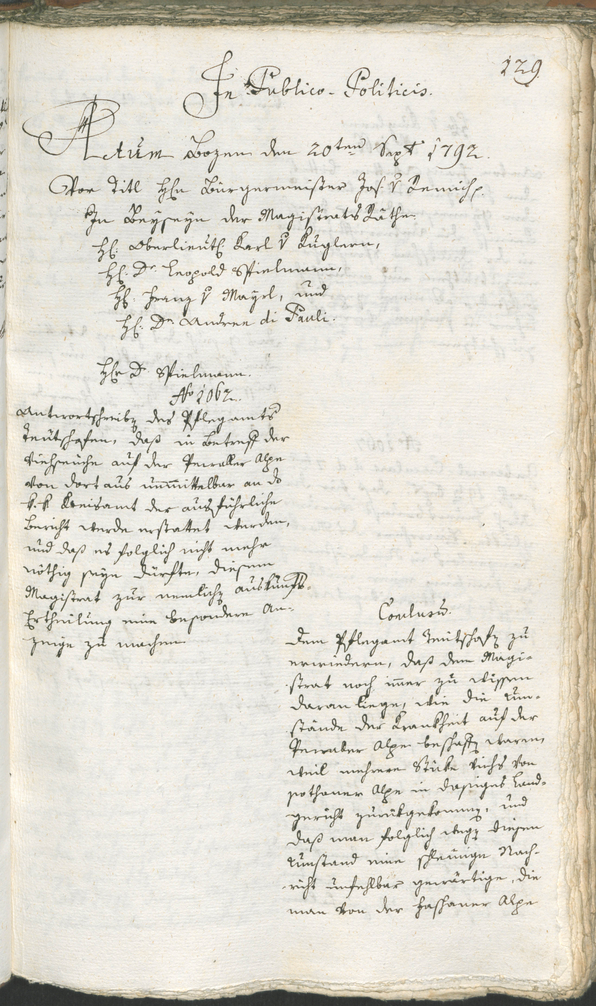 129
In Publico-Politicis.
Actum Bozen den 20ten Sept 1792.
Vor Titl Hhn Bürgermeister Jos. v
In Beyseyn der Magistrats Räthe
Hl. Oberlieuth Karl v Kuglern,
Hl. Dr Leopold Spielmann,
Hl. Franz v Mayrl, und
Hl. Dr Andree di Pauli.
Hhr Dr Spielmann.
No 1062.
Antwortschreibn des Pflegamts
Teutschofen, daß in Betreff der
Viehseuche auf der Alpe
von dort aus unmittelbar an das
k. k. Kreisamt der ausführliche
Bericht werde erstattet werden,
und daß es folglich nicht mehr
nöthig seyn dürfte, diesem
Magistrat zur nemlichn Auskunfts
Ertheilung eine besondere An-
zeige zu machen.
Conclusum.
Dem Pflegamt Teutschofn zu
erwiedern, daß dem Magi-
strat noch immer zu wissen
daran liege, wie die Um-
stände der Krankheit auf der
Alpe beschaffn waren,
weil mehrere Stüke Viehs von
Alpe in dasiges Land-
gericht zurükgekommen, und
daß man folglich wegn diesen
Umstand eine schleunige Nach-
richt unfehlbar gewärtige, die
man von der Alpe